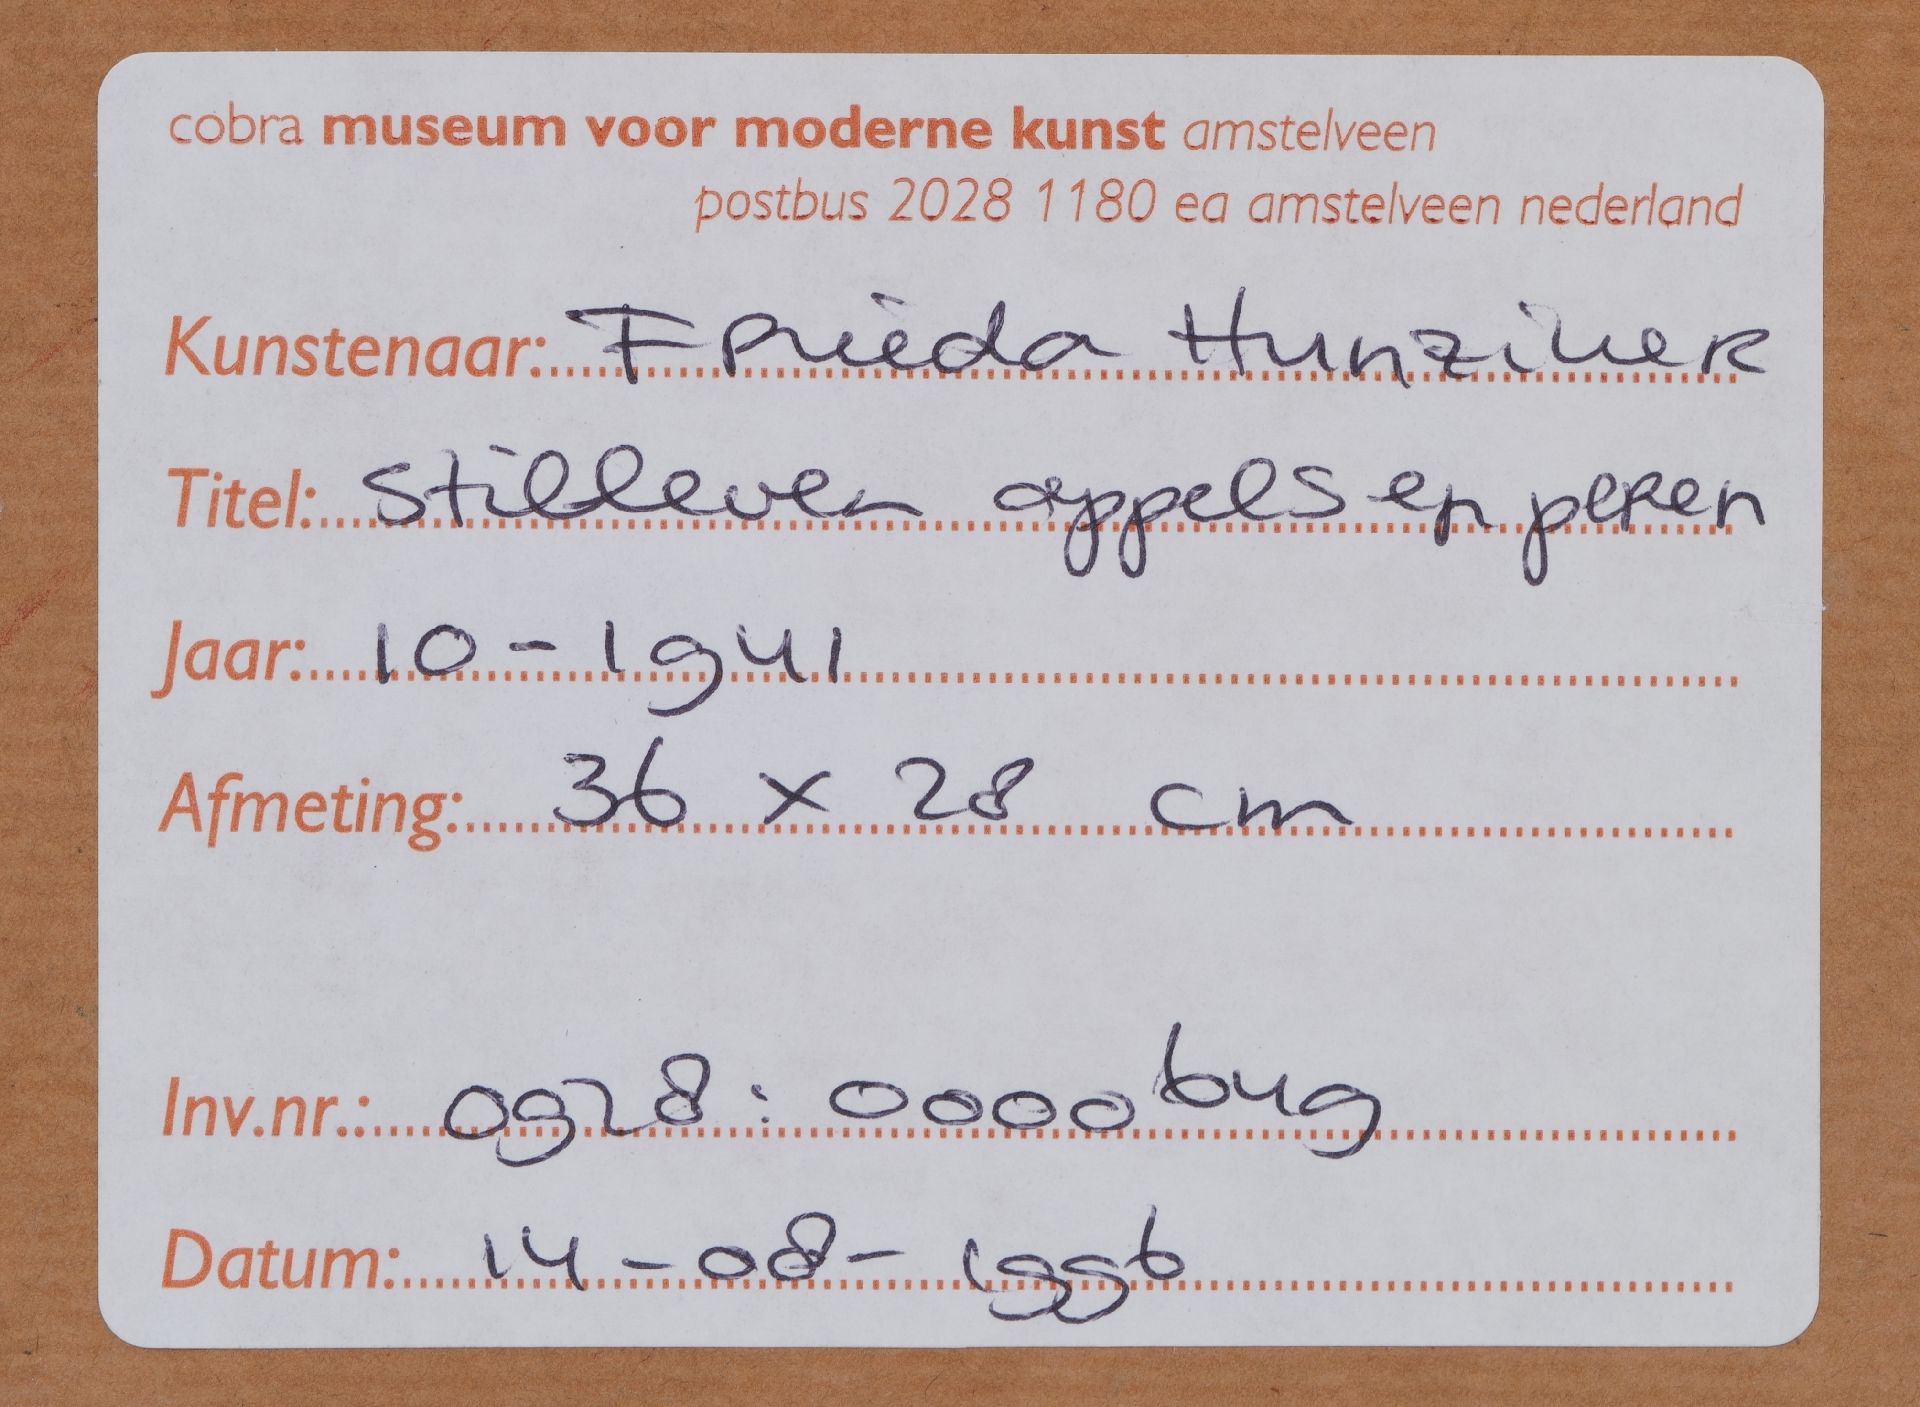 cobra museum voor moderne kunst amstelveen
postbus 2028 1180 ea amstelveen nederland
Kunstenaar: Frieda Hunziker
Titel: Stilleven appels en peren
Jaar: 10-1941
Afmeting: 36 x 28 cm
Inv.nr.: 0928:0000649
Datum: 14-08-1996